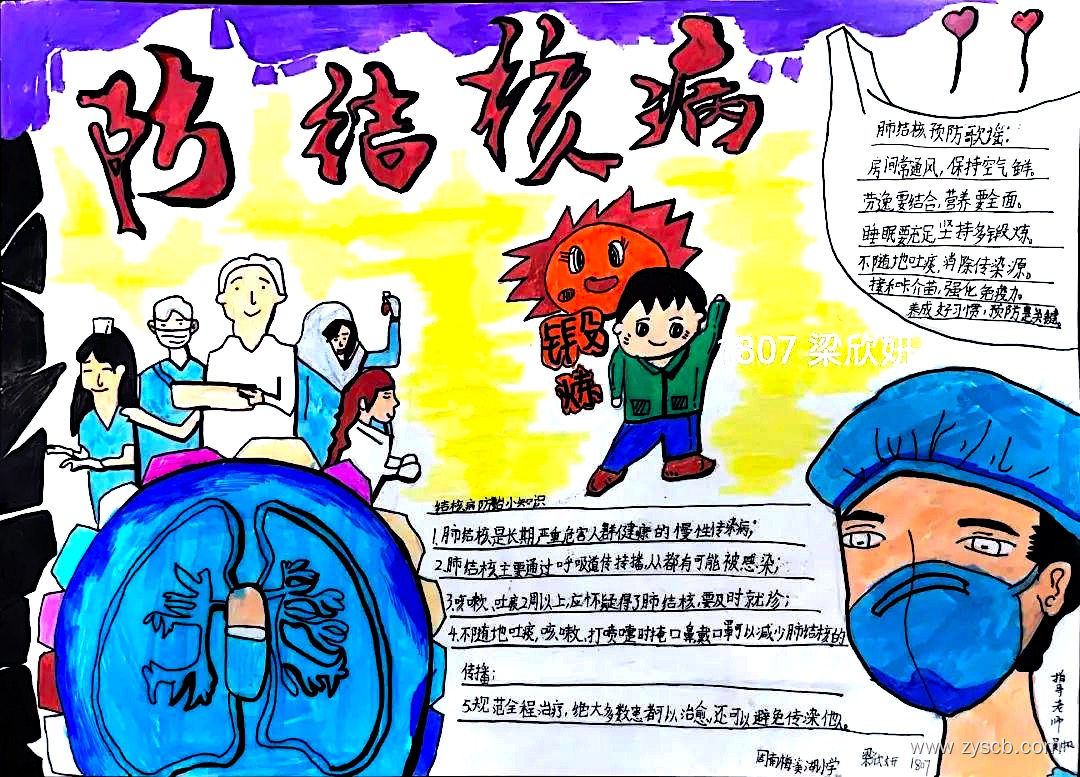 防结核病
肺结核预防歌谣:
房间常通风,保持空气鲜。
劳逸要结合,营养要全面。
睡眠要充足坚持多锻炼。
不随地吐痰,消除传染源。
接种卡介苗,强化免疫力。
养成好习惯,预防是关键。
锻
炼
1807 梁欣妍
结核病防治小知识
1.肺结核是长期严重危害人群健康的慢性传染病;
2.肺结核主要通过呼吸道传播,人都有可能被感染;
3.咳嗽、吐痰2周以上,应怀疑得了肺结核,要及时就诊;
4.不随地吐痰,咳嗽、打喷嚏时掩口鼻戴口罩可以减少肺结核的
传播;
5.规范全程治疗,绝大多数患者可以治愈,还可以避免传染他人。
梅溪湖小学 梁欣妍 1807
指导老师
www.zyscb.com